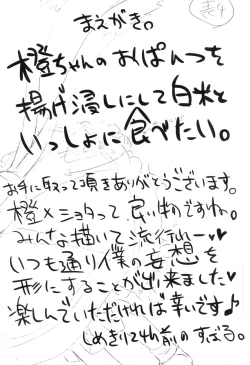 まえがき。
橙ちゃんのおぱんつを
揚げ浸しにして白米と
いっしょに食べたい。
お手に取って頂きありがとうございます。
橙×ショタって良い物ですね。
みんな描いて流行れー♥
いつも通り僕の妄想を
形にすることが出来ました♥
楽しんでいただければ幸いです♪
しめきり24h前のすばる。